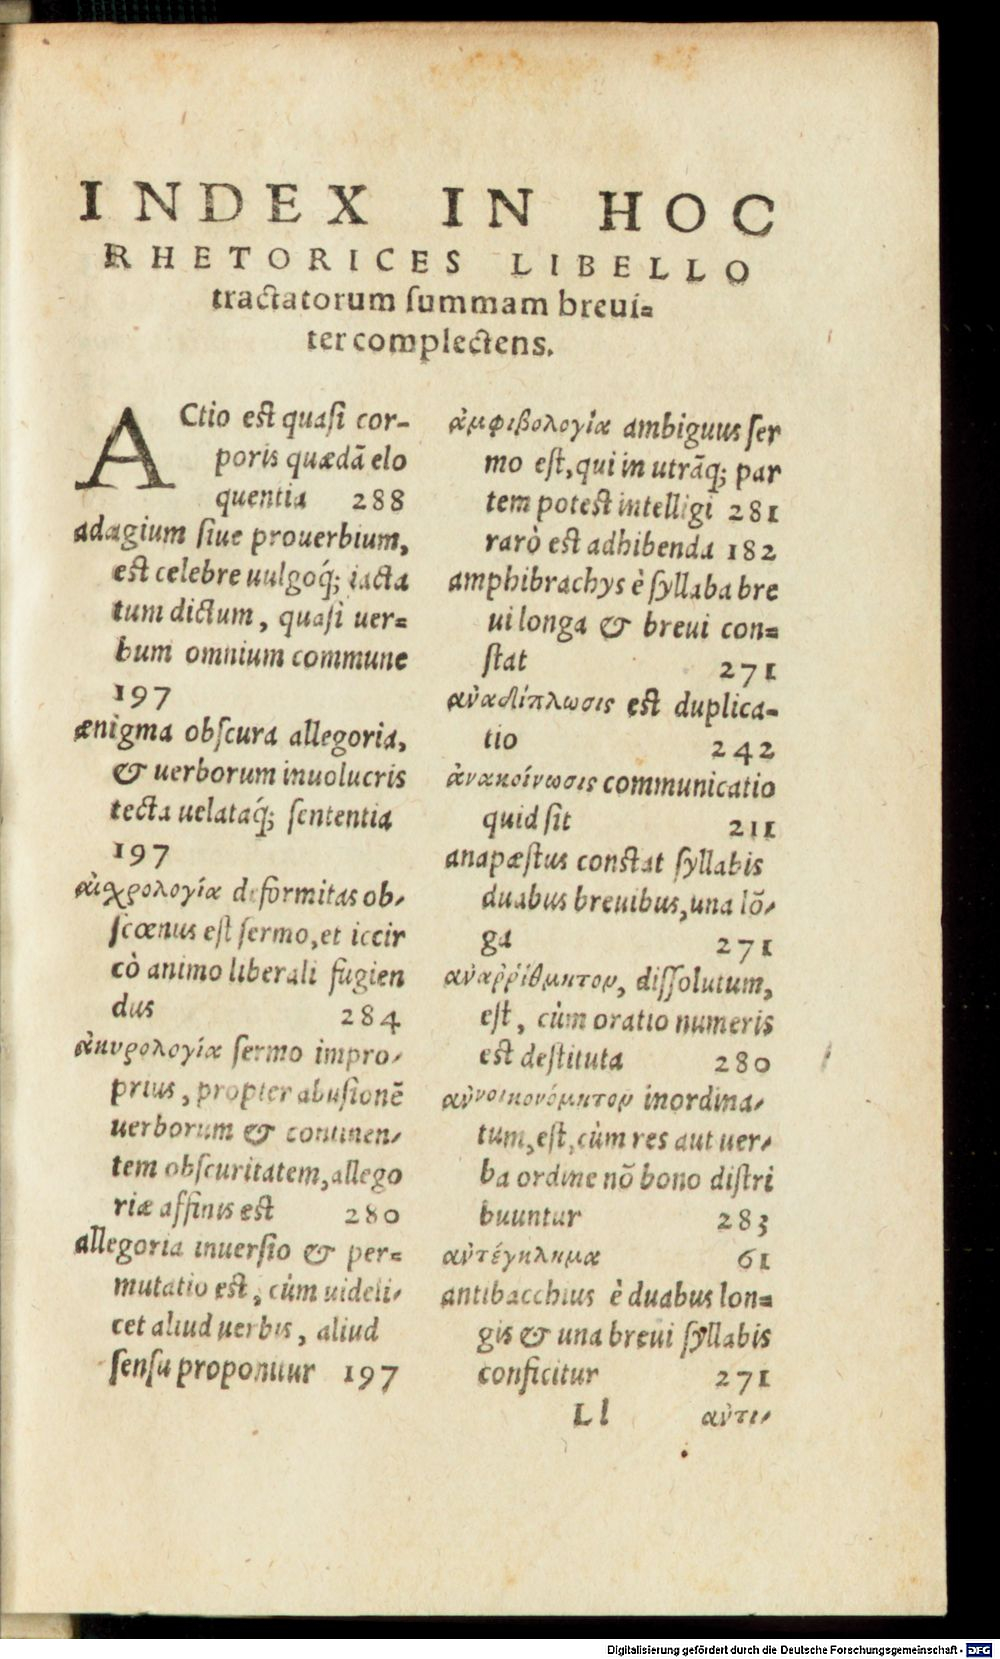 INDEX IN HOC
RHETORICES LIBELLO
tractatorum summam breui=
ter complectens.
ACtio est quasi cor-
poris quædā elo
quentia 288
adagium siue prouerbium,
est celebre uulgoq́; iacta
tum dictum, quasi uer=
bum omnium commune
197
ænigma obscura allegoria,
& uerborum inuolucris
tecta uelataq́; sententia
197
αἰχρολογία deformitas ob-
scœnus est sermo, et iccir
cò animo liberali fugien
dus 284
ἀκυρολογία sermo impro-
prius, propter abusionē
uerborum & continen-
tem obscuritatem, allego
riæ affinis est 280
allegoria inuersio & per=
mutatio est, cùm uideli-
cet aliud uerbis, aliud
sensu proponitur 197
ἀμφιβολογία ambiguus ser
mo est, qui in utrāq; par
tem potest intelligi 281
rarò est adhibenda 182
amphibrachys è syllaba bre
ui longa & breui con=
stat 271
ἀναδίπλωσις est duplica-
tio 242
ἀνακοίνωσις communicatio
quid sit 211
anapæstus constat syllabis
duabus breuibus, una lō-
ga 271
ἀναῤῥίθμητον, dissolutum,
est, cùm oratio numeris
est destituta 280
ἀνοικονόμητον inordina-
tum, est, cùm res aut uer-
ba ordine nō bono distri
buuntur 283
ἀντέγκλημα 61
antibacchius è duabus lon=
gis & una breui syllabis
conficitur 271
Ll ἀντι-
Digitalisierung gefördert durch die Deutsche Forschungsgemeinschaft - DFG